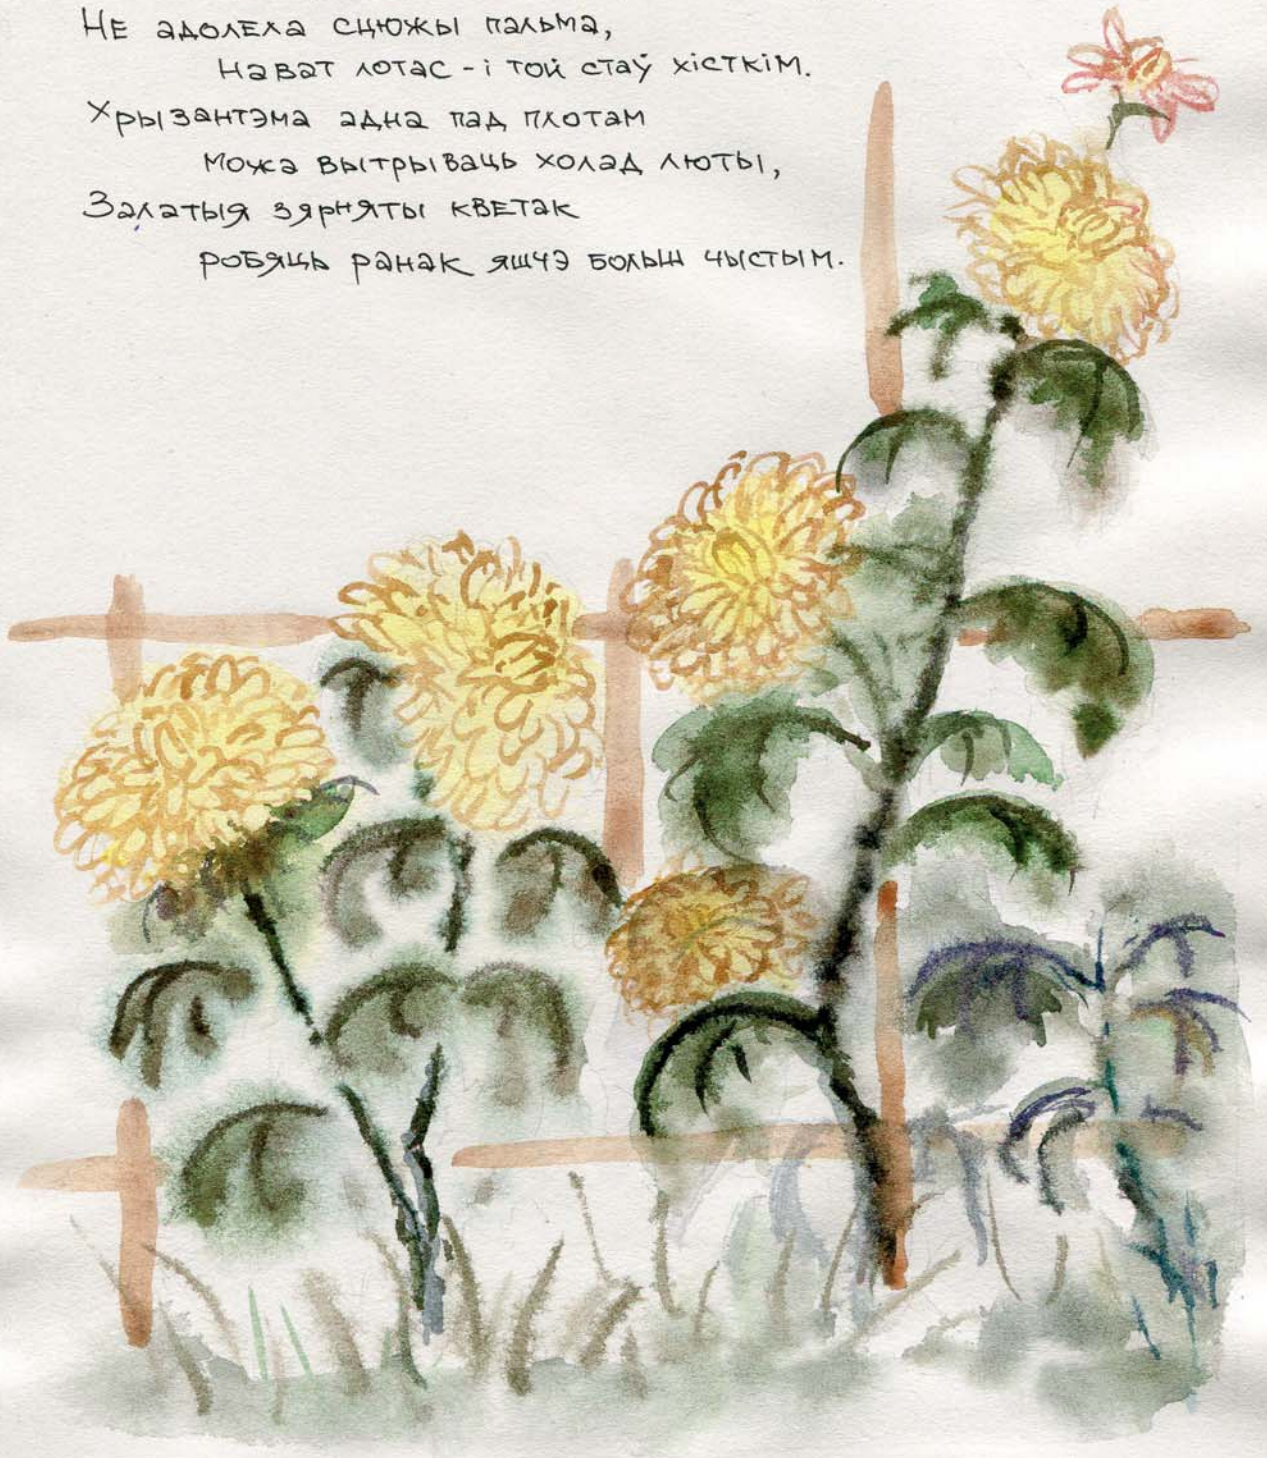 Не адолела сцюжы пальма,
Нават лотас - і той стаў хісткім.
Хрызантэма адна пад плотам
Можа вытрываць холад люты,
Залатыя зярняты кветак
робяць ранак яшчэ больш чыстым.